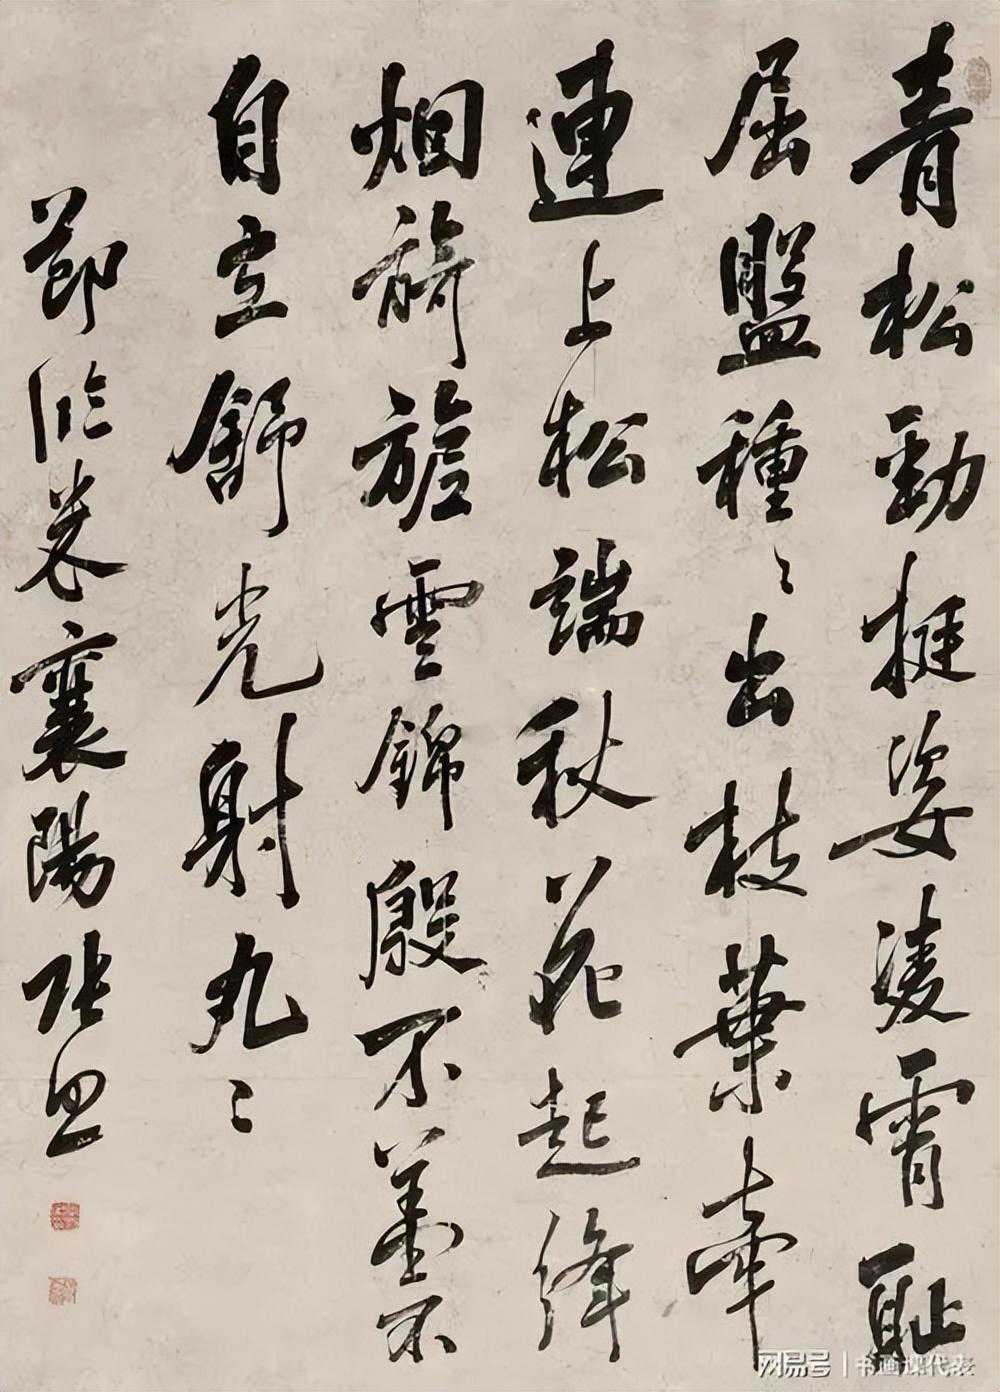 青松勁挺姿凌霄恥
屈盤種〻出枝葉牽
連上松端秋花起絳
烟旖旎雲錦殷不羞不
自立舒光射丸〻
節臨米襄陽
网易号 | 书画课代表